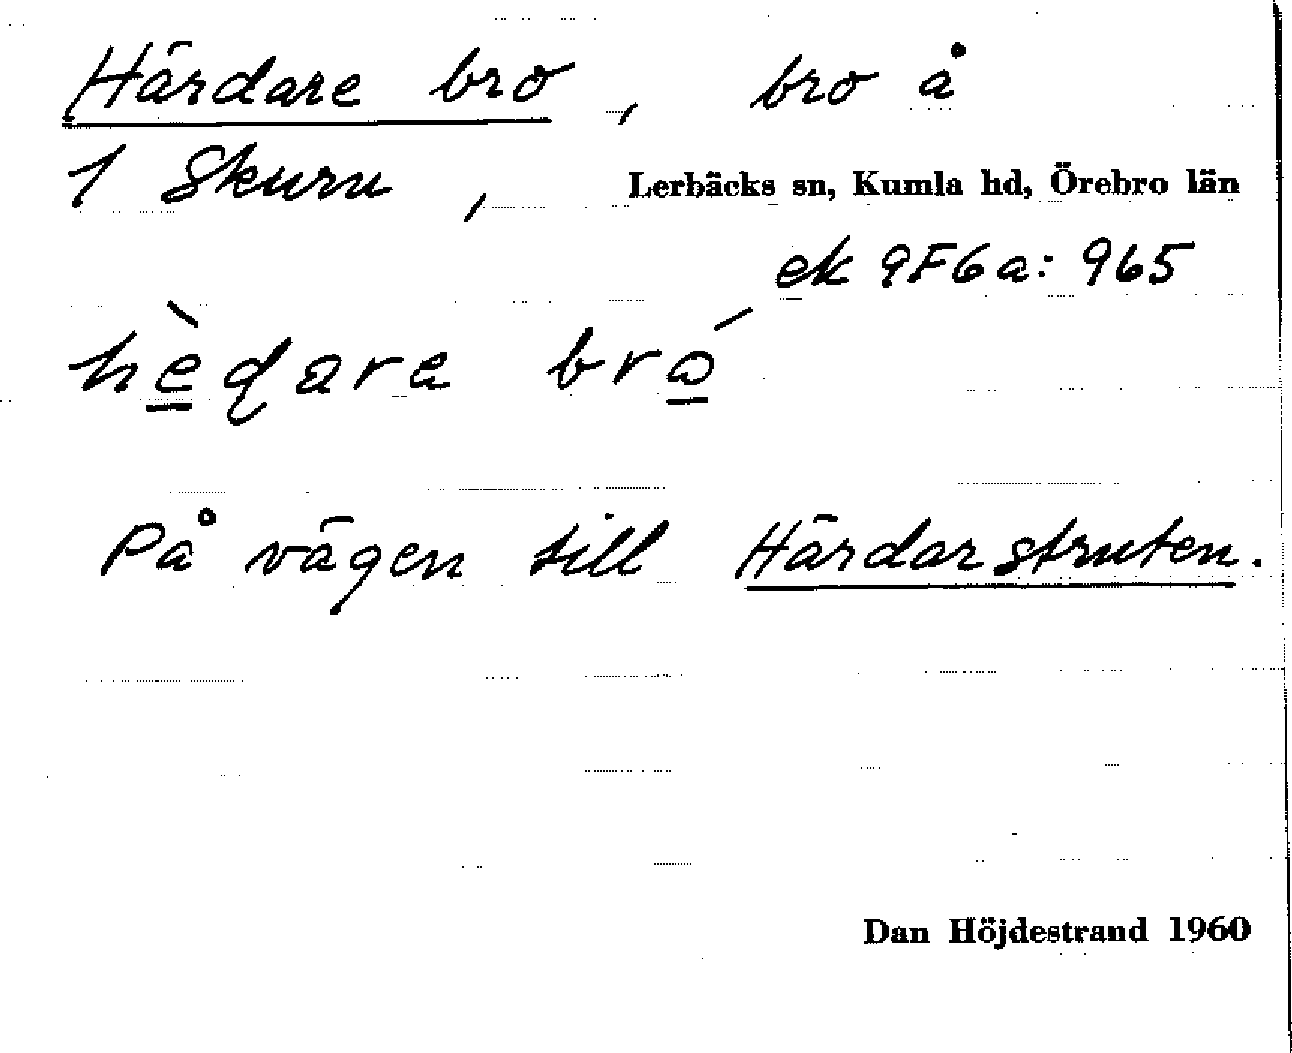 Härdare bro, bro å
1 Skuru, Lerbäcks sn, Kumla hd, Örebro län
ek 9F6a: 965
hèɖara bró
På vägen till Härdarstruten.
Dan Höjdestrand 1960